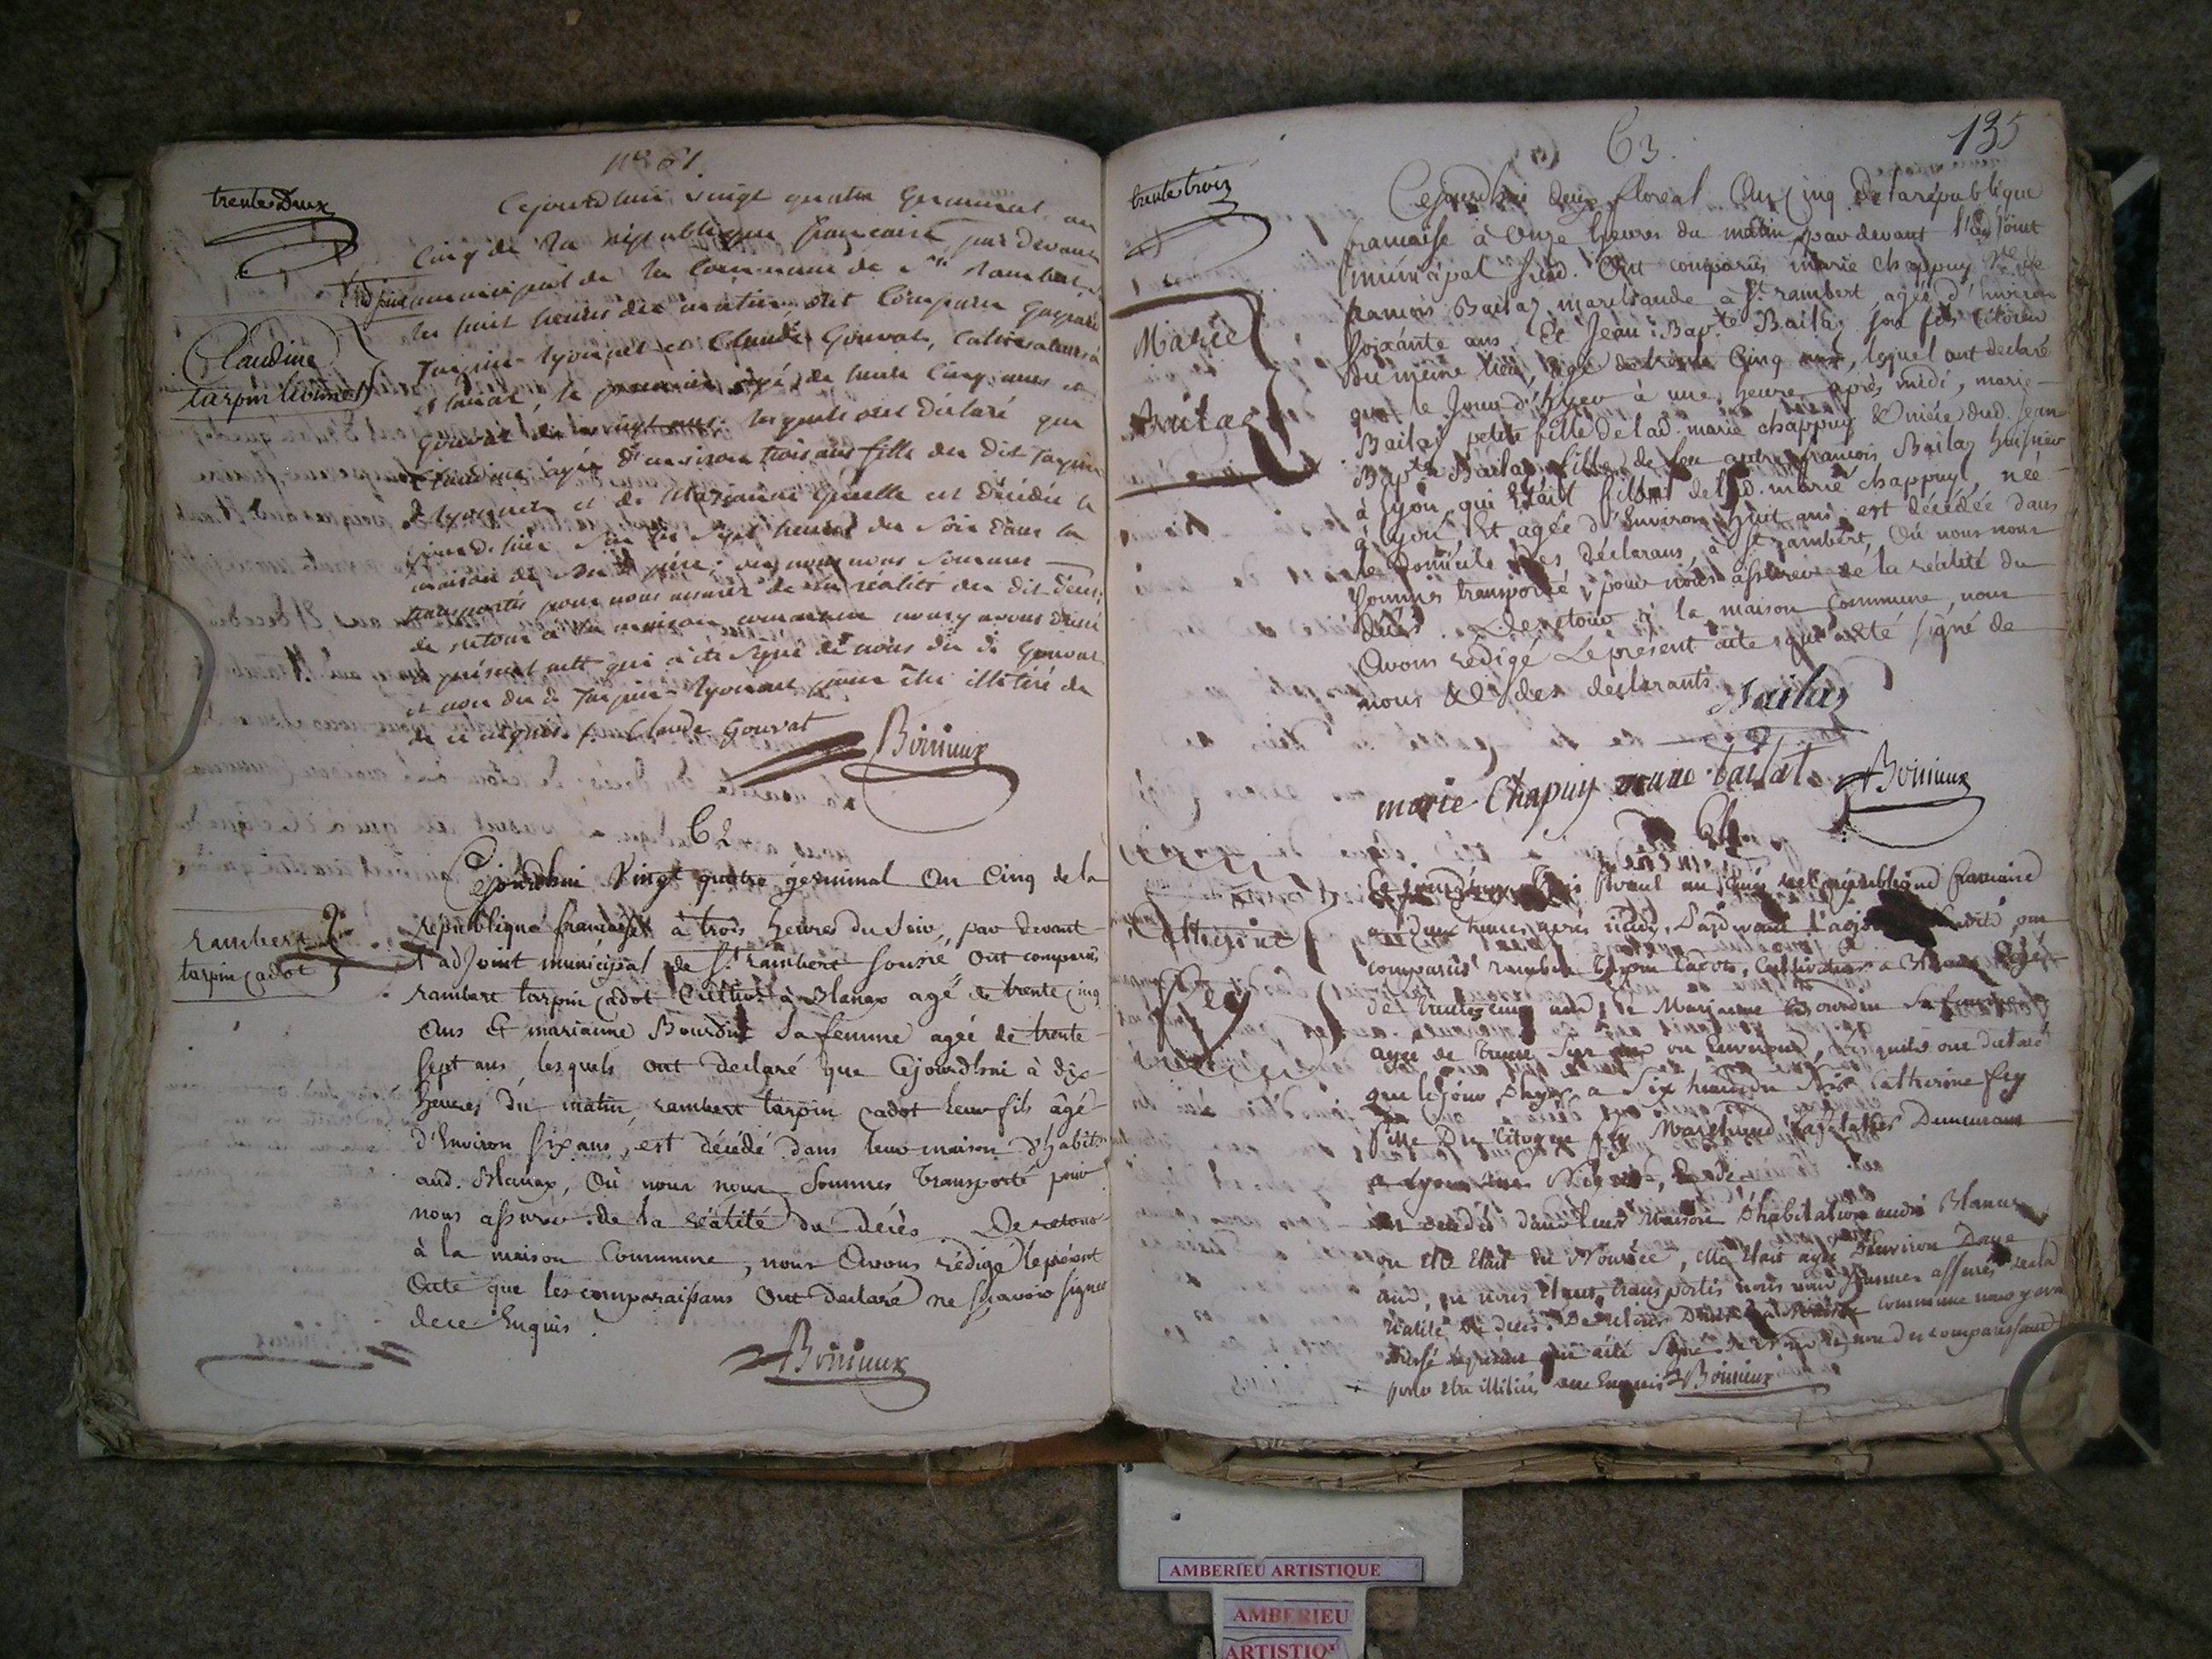 N° 61.
trente Deux
Cejourdhuy vingt quatre Germinal an
Cinq de la republique francaise, par devant
l'adjoint municipal de la Commune de St rambert
les huit heures du matin, ont Comparu
Tarpin Lyonnet et Claude Gouvat, Cultivateurs à
le premier agé de trente Cinq ans et
Gouvat de vingt ans. lesquels ont déclaré que
Claudine agée d'environ trois ans fille du dit Tarpin
Lyonnet et de Marianne est décédée le
jour d'hier sur les sept heures du soir dans la
maison de son père; ou nous nous sommes
transportés pour nous assurer de la réalité du dit décés,
de retour à la maison commune nous y avons
le présent acte qui a été signé de nous du d. Gouvat
et non du d. Tarpin Lyonnet pour être illitéré de
ce enquis. Claude Gouvat
Bonieux
Claudine
tarpin lionnet
62
Cejourdhui Vingt quatre germinal an Cinq de la
republique francaise à trois heures du soir, par devant
l'adjoint municipal de St rambert sousné, ont comparus
rambert tarpin Cadot Cultivr à Blanax agé de trente cinq
ans Et marianne Bourdin sa femme agée de trente
sept ans, lesquels ont declaré que Cejourdhui à dix
heures du matin rambert tarpin Cadot leur fils âgé
d'Environ six ans, est décédé dans leur maison d'habiton
aud. Blanax, Où nous nous sommes transporté pour
nous assurer de la réalité du décès De retour
à la maison Commune, nous Avons rédigé le présent
acte que les comparaissans ont declaré ne sçavoir signer
de ce Enquis.
Bonieux
rambert
tarpin Cadot
63.
135
trente trois
Cejourdhui Deux floreal An Cinq De la république
francaise à Onze heures du matin, par devant l'adjoint
municipal susd. Ont comparus marie chappuy Ve de
francois Bailaz marchande à St rambert, agée d'Environ
soixante ans. Et Jean-Bapte Bailaz son fils Citoien
du même lieu, agé de trente Cinq ans, lequel ont declaré
que le Jour d'hier à une heure après midi, marie
Bailaz petite fille de lad. marie chappuy & niéce dud. Jean
Bapte Bailaz fille de feu autre francois Bailaz huissier
à lyon, qui Etait fils de lad. marie chappuy, née
à lyon Et agée d'Environ huit ans est décédée dans
le Domicile des Déclarans, à St rambert, Où nous nous
sommes transporté pour nous assurer de la réalité du
décès. De retour à la maison Commune, nous
Avons rédigé Le présent acte qui a été signé de
nous & des déclarants
Bailaz
marie Chapuy veuve bailat
Bonieux
Marie
Bailaz
64
floreal an Cinq republique francaise
a deux heures après midi, Pardevant l'adjoint ont
comparus rambert Tarpin Cadot, Cultivateur a Blanax agé
de trente cinq ans, & Marianne Bourdin sa femme
agée de trente sept ans ou Environ, lesquels ont declaré
que le jour d'hyer a six heures du soir Catherine fey
fille Du Citoyen fey Marchand Demeurant
a Lyon
est decedée dans leur maison d'habitation audit Blanax
ou elle Etait En Nourice, elle Etait agée d'Environ Douze
ans, ou nous étant transportés nous nous sommes assurés de la
réalité du deces. De retour Dans la maison commune nous y avons
dressé le present qui a été signé de nous & non des comparaissants
pour être illitérés de ce Enquis Bonieux
Catherine
fey
AMBERIEU ARTISTIQUE
AMBERIEU
ARTISTIQ